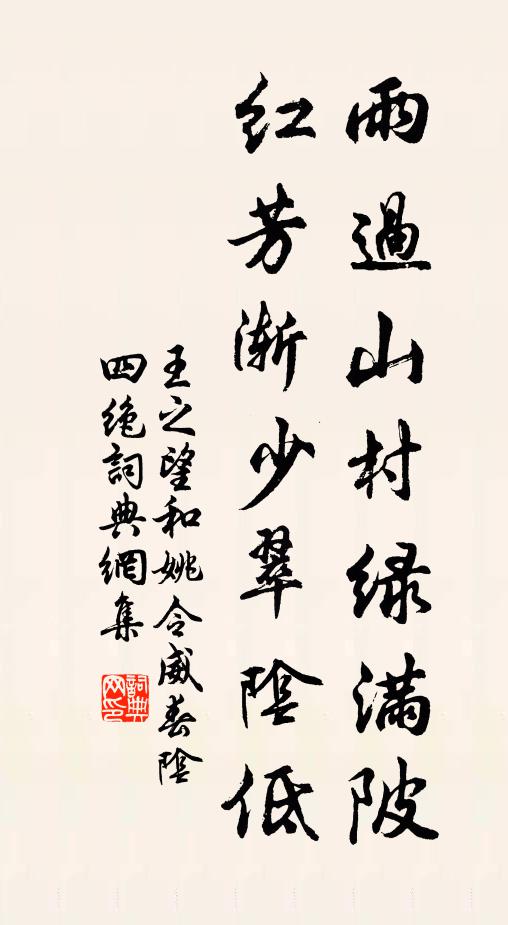 雨過山村綠滿陂
紅芳漸少翠陰低
王之望和姚令威春陰
四絶詞典網集
詞典網印